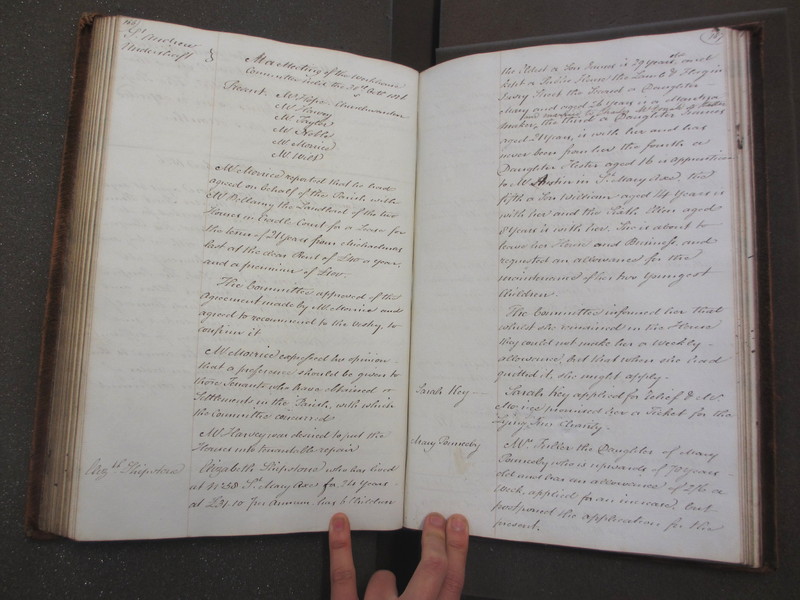 St. Andrew
Undershaft
At a Meeting of the Workhouse
Committee
Present Mr Hope Churchwarden
Mr Harvey
Mr Taylor
Mr Noble
Mr Morrice
Mr Wild
Mr Morrice reported that he had
agreed on behalf of the Parish with
Mr Bellamy the Landlord of the two
Houses in Court for a Lease for
the term of 21 Years from Michaelmas
last at the clear Rent of £40 a year,
and a premium of £100.
The Committee approved of the
agreement made by Mr Morrice and
agreed to recommend to the Vestry, to
confirm it
Mr Morrice expressed his opinion
that a preference should be given to
those Tenants who have obtained
Settlements in the Parish, with which
the Committee concurred
Mr Harvey was desired to put the
Houses into tenantable repair
Elizth Shipstone
Elizabeth Shipstone who has lived
at No 38 St. Mary Axe for 24 years
at £34.10 per Annum has 6 Children
the Eldest a Son James is 29 years
kept a Public House the Lamb &
the Second a Daughter
Mary and aged 26 Years is a Mantua
maker, the third a Daughter Frances
aged 21 Years, is with her and has
never been from her the fourth a
Daughter Hester aged 16 is apprentice
to Mr Austin in St. Mary Axe, the
fifth a Son William aged 14 Years is
with her and the Sixth aged
8 Years is with her. She is about to
leave her House and Business, and
requested an allowance for the
maintenance of her two youngest
Children.
The Committee informed her that
whilst she remained in the House
they could not make her a Weekly
allowance, but that when she had
quitted it, she might apply.
Sarah Key
Sarah Key applied for relief & Mr
Morrice promised her a Ticket for the
Lying Inn Charity.
Mary Ponneby
Mrs Fuller the Daughter of Mary
Ponneby who is upwards of 70 Years
old and has an allowance of 2/6 a
Week, applied for an increase, but
postponed the application for the
present.